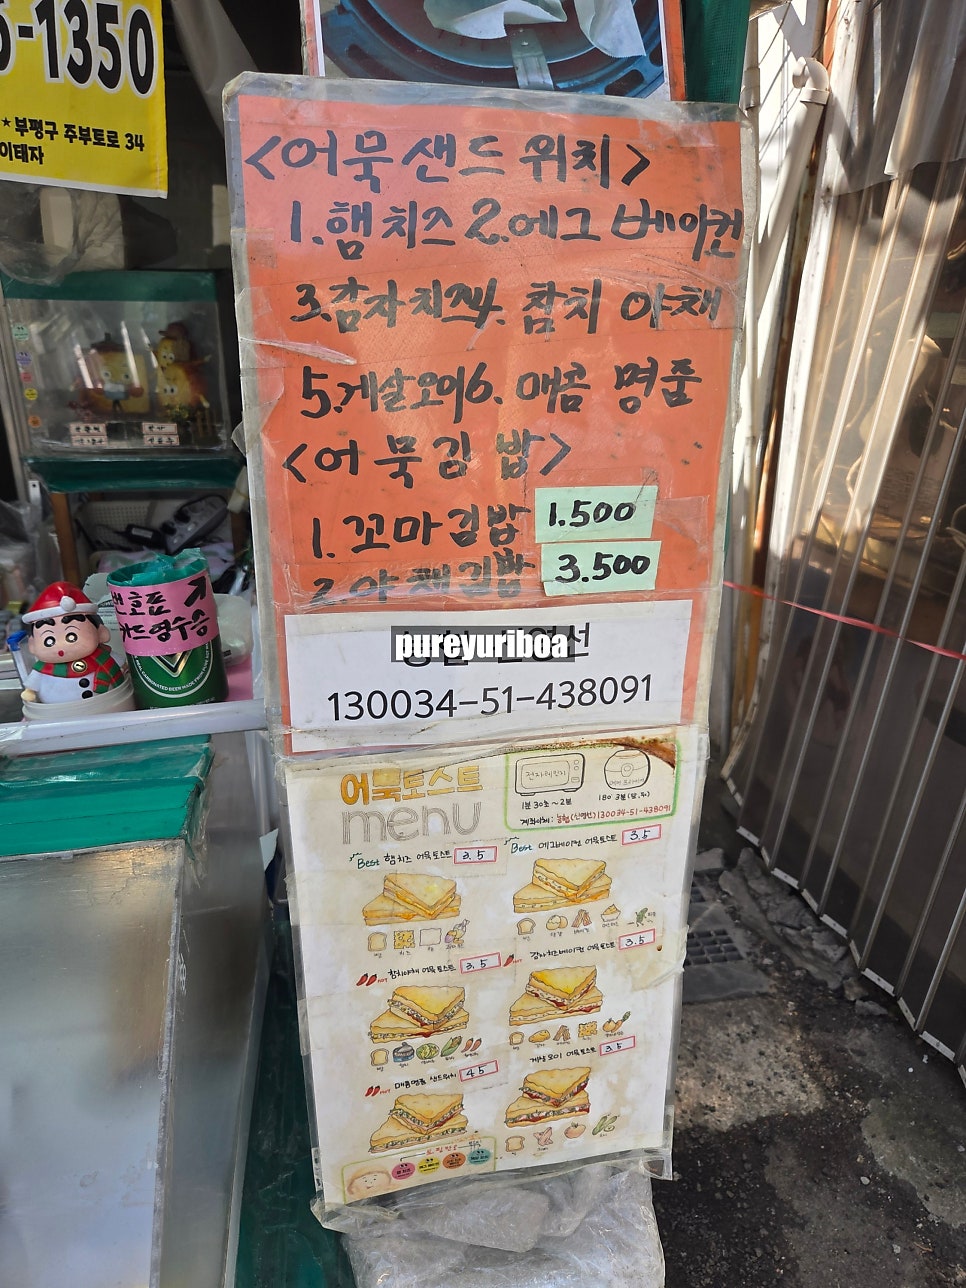 5-1350
★부평구 주부토로 34
이테자
<어묵샌드위치>
1.햄치즈 2.에그베이컨
3.감자치즈 4.참치 야채
5.게살오이 6.매콤 명품
<어묵김밥>
1.꼬마김밥 1.500
2.야채김밥 3.500
pureyuriboa
130034-51-438091
어묵토스트
menu
전자레인지
1분 30초~2분
180 3분(앞,뒤)
계좌이체: 농협(신영선)130034-51-438091
Best 햄치즈 어묵토스트 3.5
Best 에그베이컨 어묵토스트 3.5
HOT 참치야채 어묵토스트 3.5
감자치즈베이컨 어묵토스트 3.5
HOT 매콤명품 샌드위치 4.5
게살오이 어묵토스트 3.5